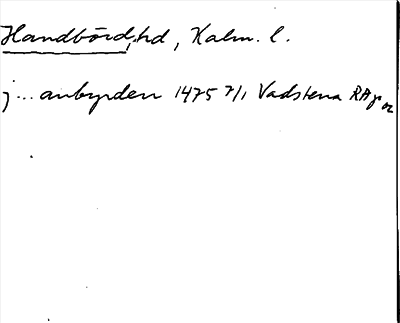 Handbörd, hd, Kalm. l.
j... anbyrden 1475 7/1 Vadstena RAp or